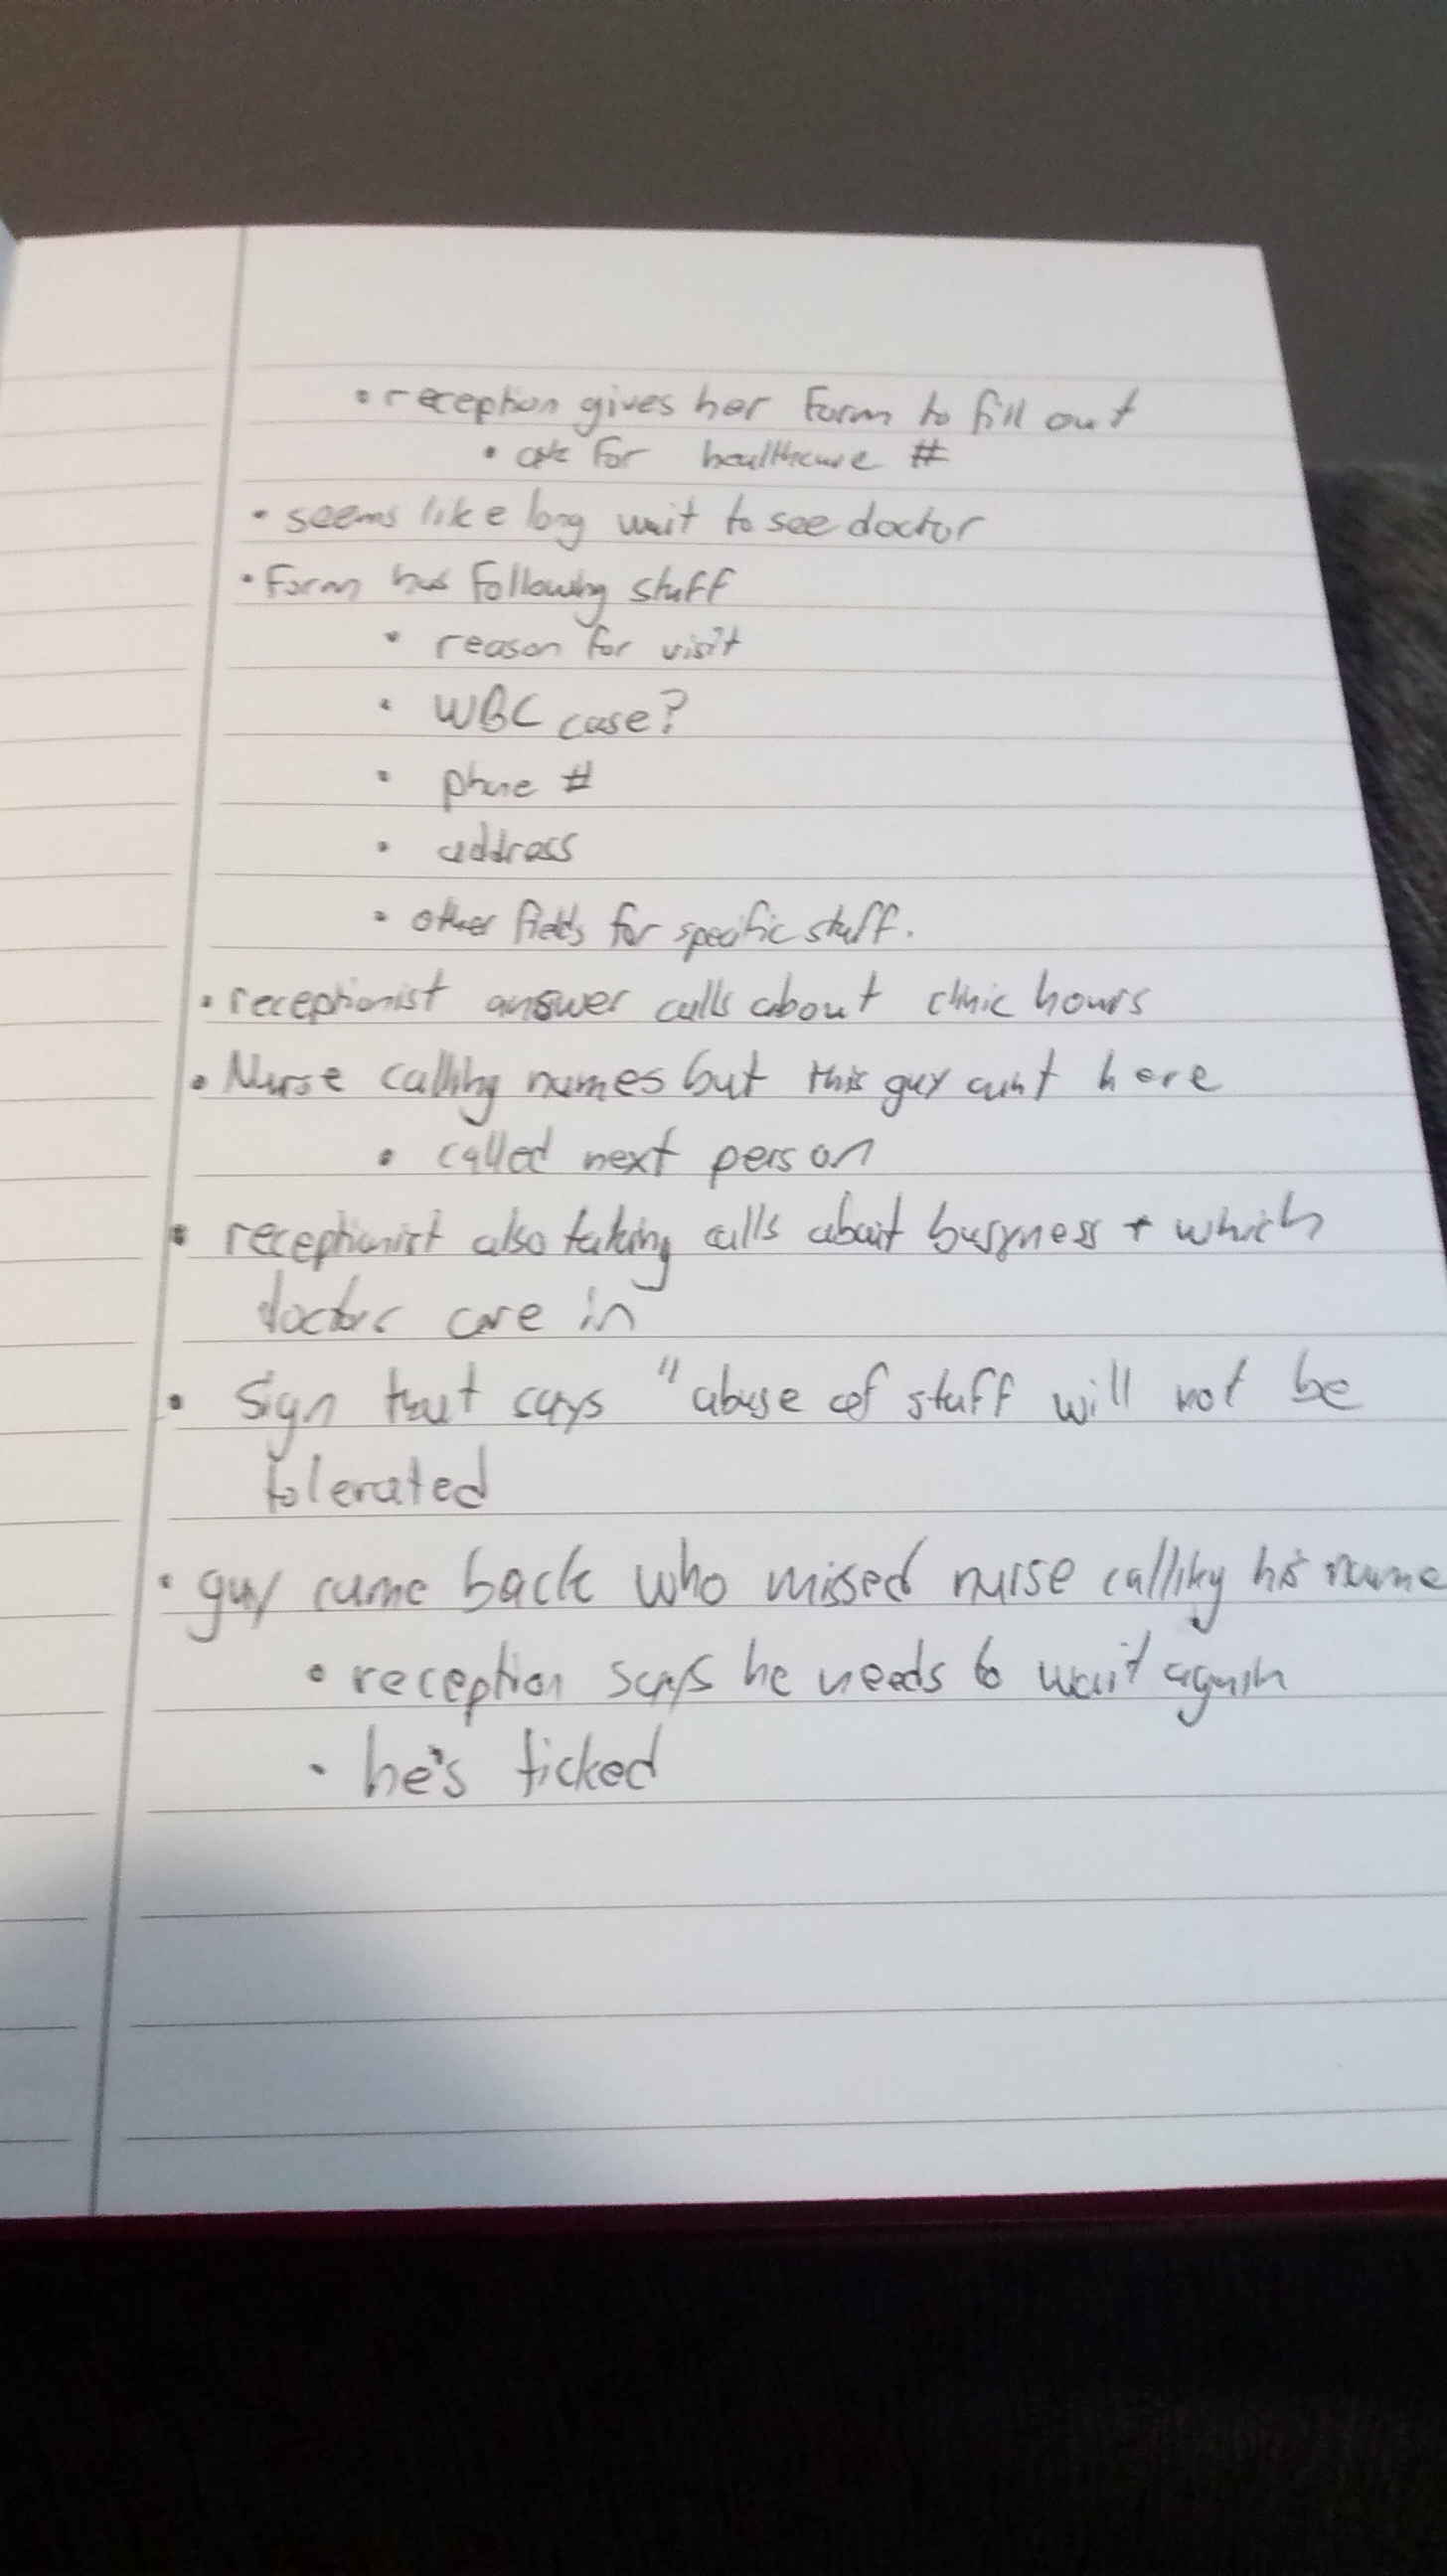 • reception gives her form to fill out
• ask for healthcare #
• seems like long wait to see doctor
• Form has following stuff
• reason for visit
• WBC case?
• phone #
• address
• other fields for specific stuff.
• receptionist answer calls about clinic hours
• Nurse calling names but this guy aint here
• called next person
• receptionist also taking calls about busyness + which
doctors are in
• Sign that says "abuse of staff will not be
tolerated
• guy came back who missed nurse calling his name
• reception says he needs to wait again
• he's ticked